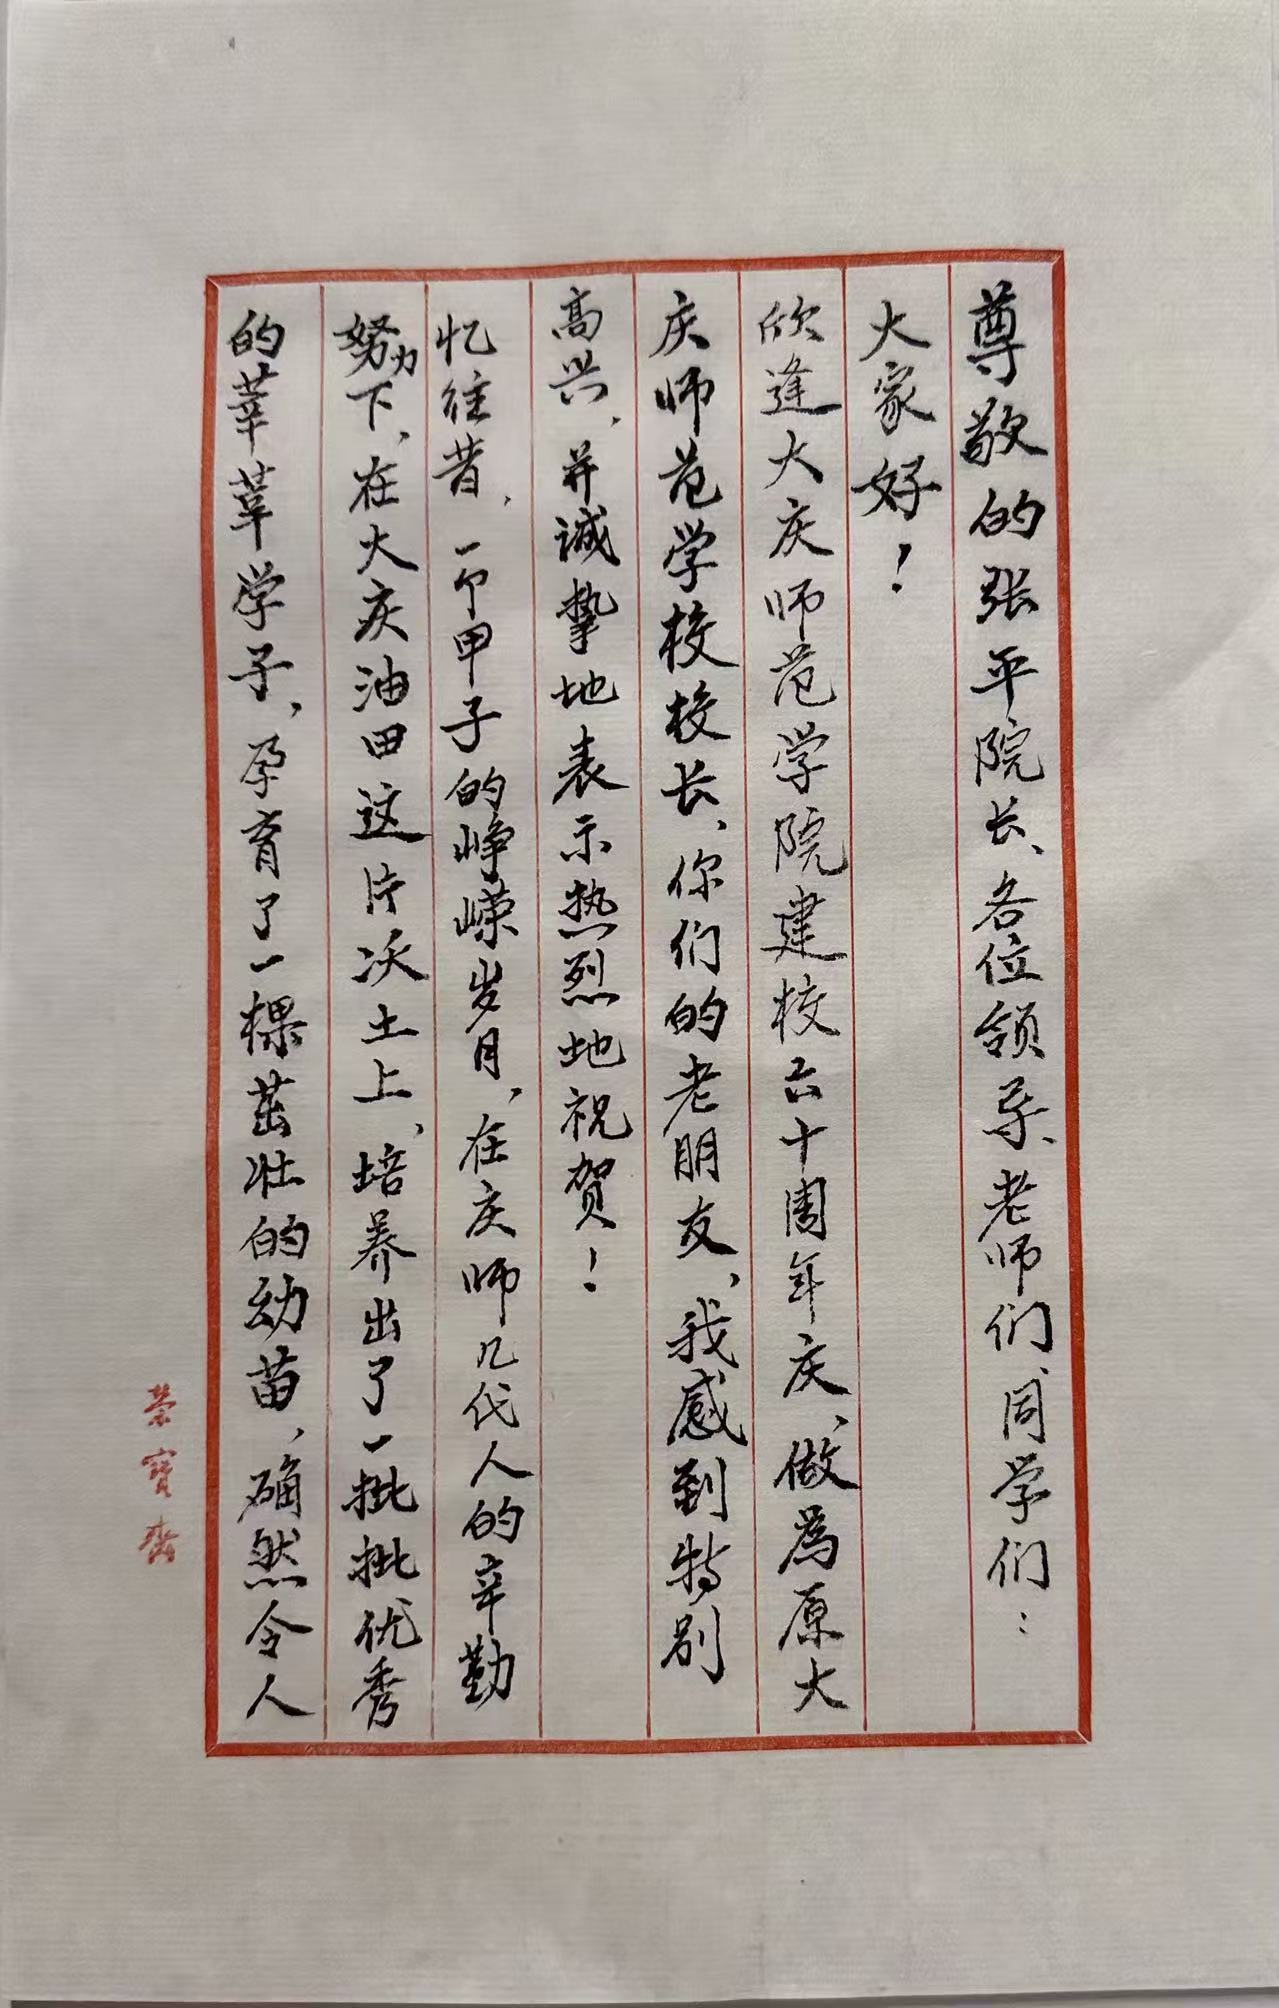 尊敬的张平院长、各位领导、老师们、同学们：
大家好！
欣逢大庆师范学院建校六十周年庆、做為原大
庆师范学校校长、你们的老朋友、我感到特别
高兴、并诚挚地表示热烈地祝贺！
忆往昔，一个甲子的峥嵘岁月，在庆师几代人的辛勤
努力下，在大庆油田这片沃土上、培养出了一批批优秀
的莘莘学子，孕育了一棵棵茁壮的幼苗、确然令人
荣寶齋